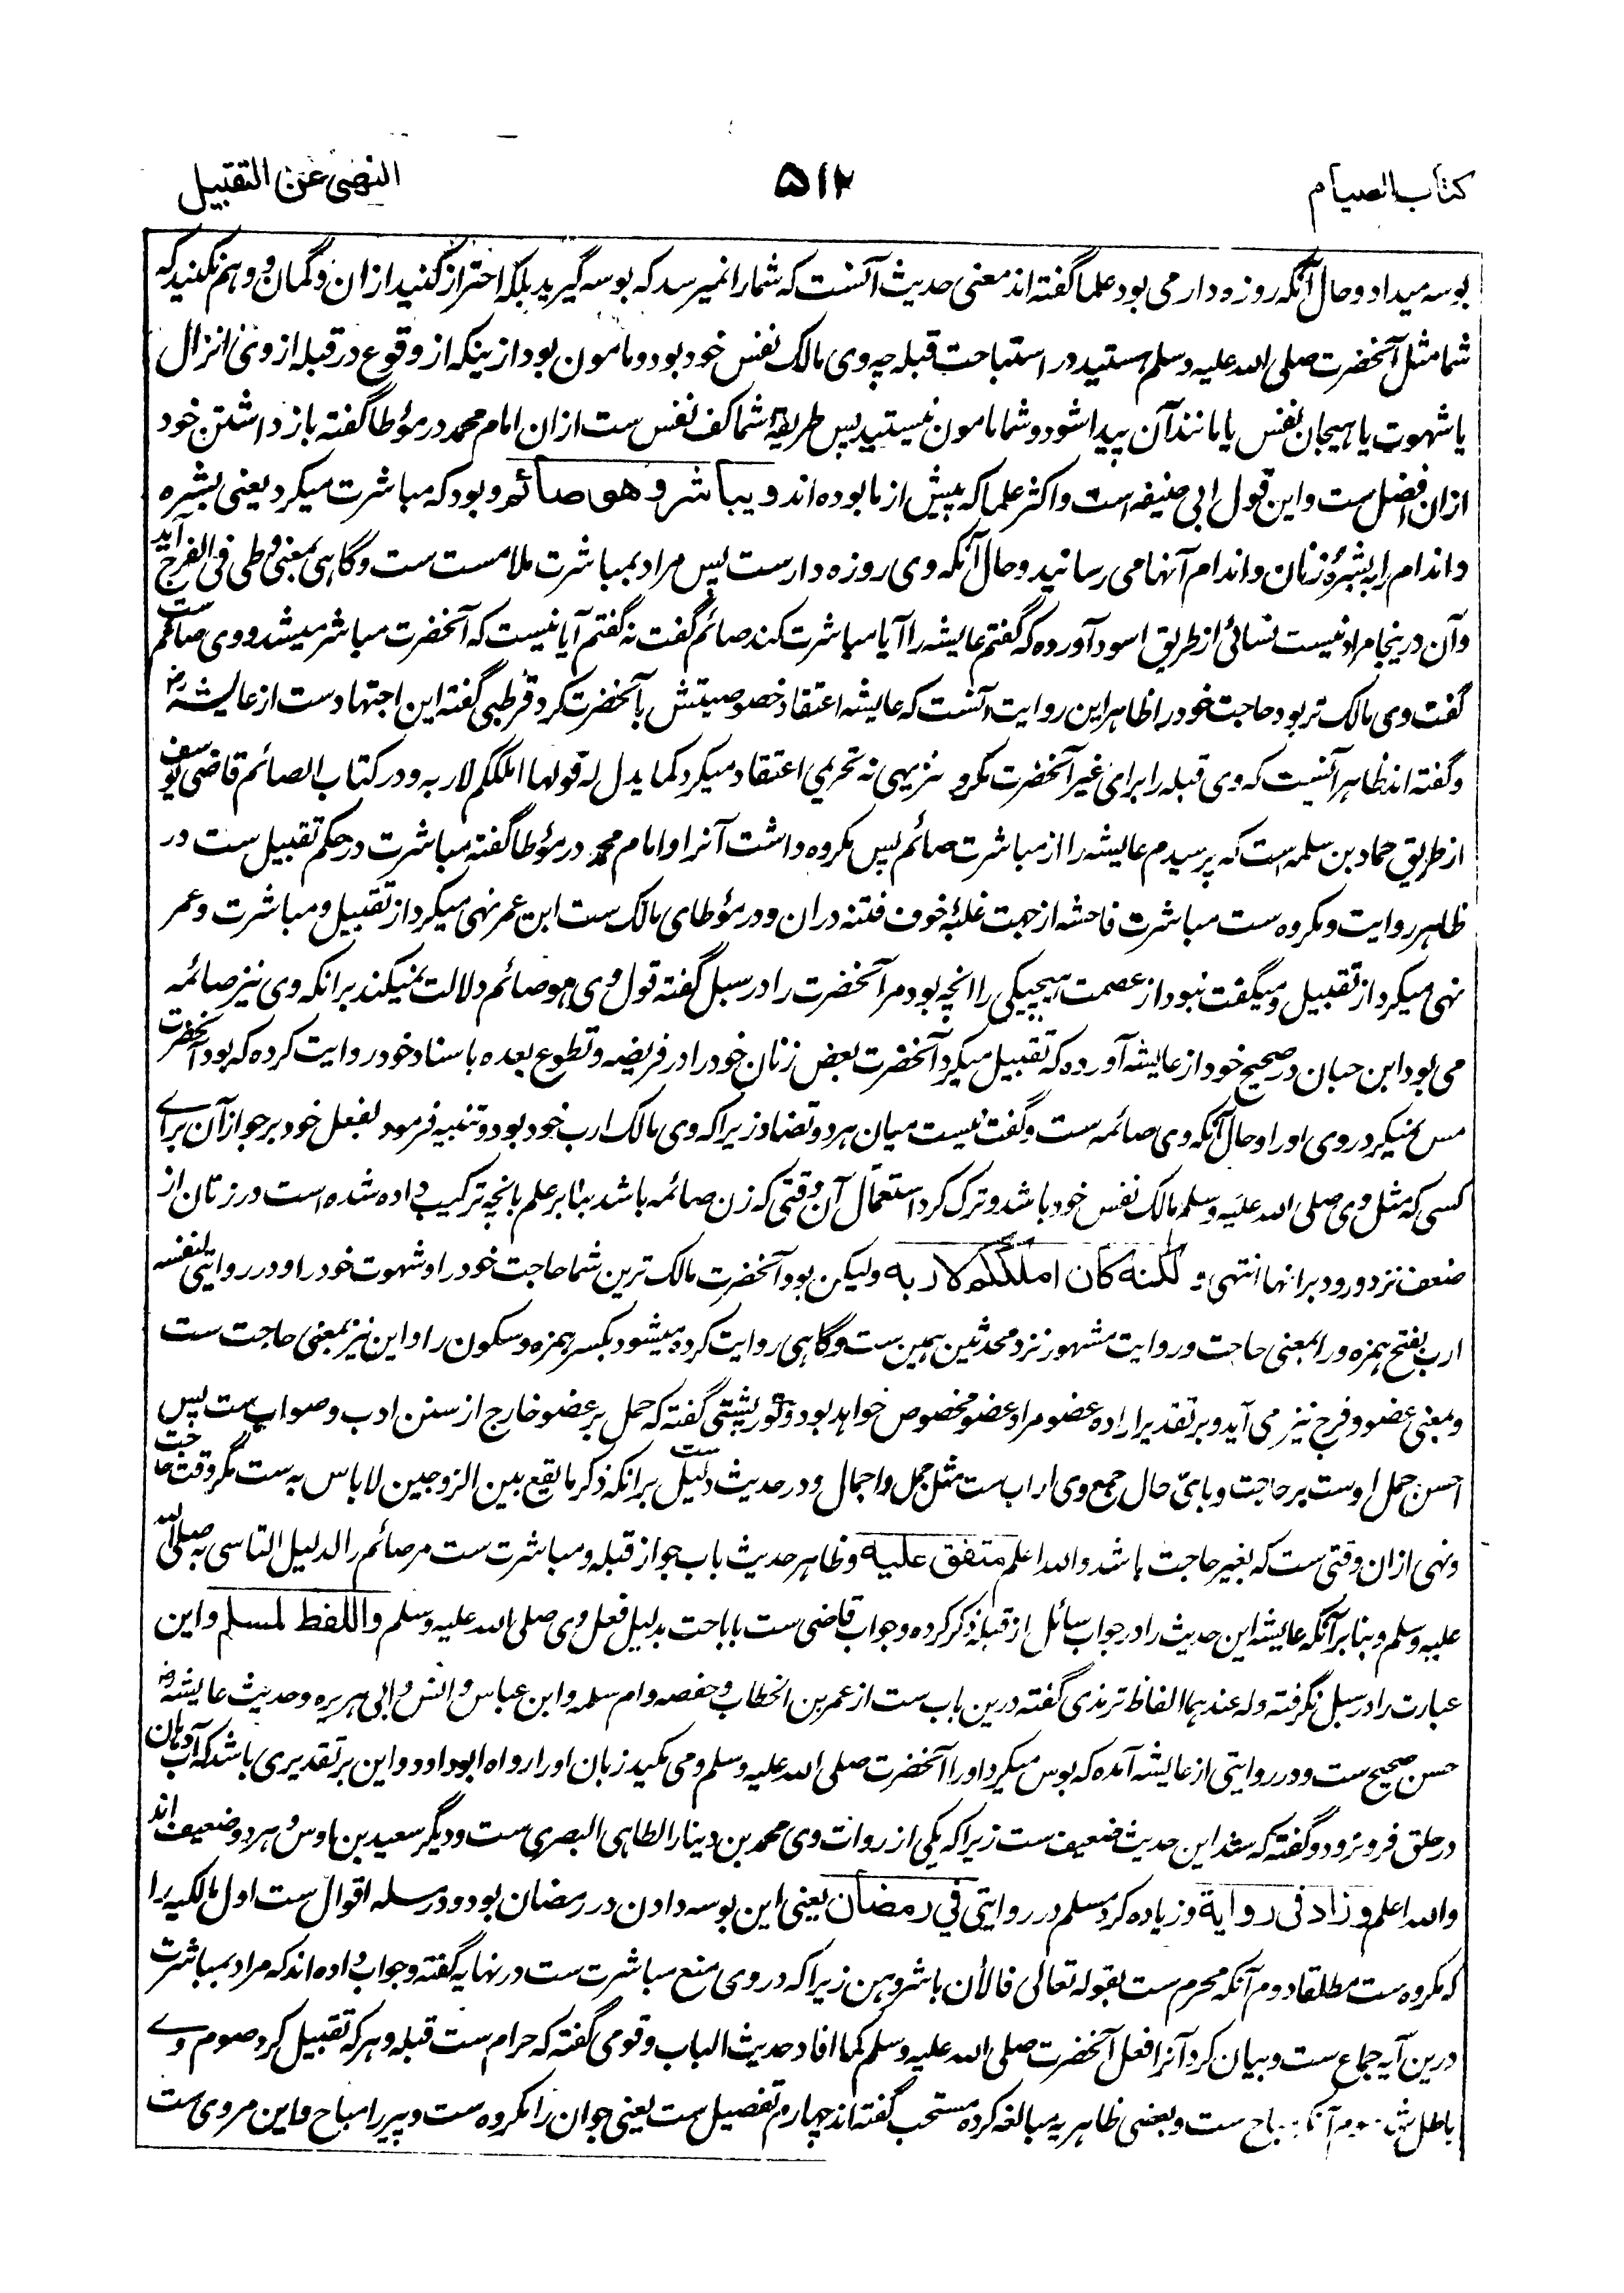 کتاب الصیام
۵۱۲
النهی عن التقبیل
بوسه میداد و حال آنکه روزه دار می بود علما گفته اند معنی حدیث آنست که شما را نمیرسد که بوسه گیرید بلکه احتراز کنید ازان و گمان و وهم نکنید که
شما مثل آنحضرت صلی الله علیه وسلم هستید در استباحت قبله چه وی مالک نفس خود بود و مامون بود از ینکه از وقوع در قبله از وی انزال
یا شهوت یا هیجان نفس یا مانند آن پیدا شود و شما مامون نیستید پس طریقهٔ شما کف نفس ست ازان امام محمد در مؤطا گفته باز داشتن خود
ازان افضل ست و این قول ابی حنیفه است و اکثر علما که پیش از ما بوده اند و یباشر و هو صائم و بود که مباشرت میکرد یعنی بشره
و اندام را به بشرهٔ زنان و اندام آنها می رسانید و حال آنکه وی روزه دارست پس مراد بمباشرت ملامست ست و گاهی بمعنی وطی فی الفرج آید
و آن درینجا مراد نیست نسائی از طریق اسود آورده که گفتم عایشه را آیا مباشرت کند صائم گفت نه گفتم آیا نیست که آنحضرت مباشر میشد و وی صائم ست
گفت وی مالک تر بود حاجت خود را ظاهر این روایت آنست که عایشه اعتقاد خصوصیتش بآنحضرت کرد قرطبی گفته این اجتهادست از عایشه رض
و گفته اند ظاهر آنست که وی قبله را برای غیر آنحضرت مکروه تنزیهی نه تحریمی اعتقاد میکرد کما یدل له قولها املککم لاربه و در کتاب الصائم قاضی یوسف
از طریق حماد بن سلمه است که پرسیدم عایشه را از مباشرت صائم پس مکروه داشت آنرا و امام محمد در مؤطا گفته مباشرت در حکم تقبیل ست در
ظاهر روایت و مکروه ست مباشرت فاحشه از جهت غلبهٔ خوف فتنه دران و در مؤطای مالک ست ابن عمر نهی میکرد از تقبیل و مباشرت و عمر
نهی میکرد از تقبیل و میگفت نبود از عصمت هیچیکی را انچه بود مر آنحضرت را در سبل گفته قول وی وهو صائم دلالت نمیکند برانکه وی نیز صائمه
می بود ابن حبان در صحیح خود از عایشه آورده که تقبیل میکرد آنحضرت بعض زنان خود را در فریضه و تطوع بعده باسناد خود روایت کرده که بود آنحضرت
مس نمیکرد روی او را و حال آنکه وی صائمه ست و گفت نیست میان هر دو تضاد زیرا که وی مالک ارب خود بود و تنبیه فرمود بفعل خود بر جواز آن برای
کسی که مثل وی صلی الله علیه وسلم مالک نفس خود باشد و ترک کرد استعمال آن وقتی که زن صائمه باشد بنا بر علم بانچه ترکیب داده شده است در زنان از
ضعف نزد ورود برانها انتهی و لکنه کان املککم لاربه و لیکن بود آنحضرت مالک ترین شما حاجت خود را و شهوت خود را و در روایتی لنفسه
ارب بفتح همزه و را بمعنی حاجت و روایت مشهور نزد محدثین همین ست و گاهی روایت کرده میشود بکسر همزه و سکون را و این نیز بمعنی حاجت ست
و بمعنی عضو و فرج نیز می آید و بر تقدیر اراده عضو مراد عضو مخصوص خواهد بود و تورپشتی گفته که حمل بر عضو خارج از سنن ادب و صواب ست پس
احسن حمل اوست بر حاجت و بای حال جمع وی اراب ست مثل جمل و اجمال و در حدیث دلیل ست برانکه ذکر ما یقع بین الزوجین لا باس به ست مگر وقت حاجت
و نهی ازان وقتی ست که بغیر حاجت باشد والله اعلم متفق علیه و ظاهر حدیث باب جواز قبله و مباشرت ست مر صائم را لدلیل التاسی به صلی الله
علیه وسلم و بنا بر آنکه عایشه این حدیث را در جواب سائل از قبله ذکر کرده و جواب قاضی ست باباحت بدلیل فعل وی صلی الله علیه وسلم واللفظ لمسلم و این
عبارت را در سبل نگرفته وله عندهما الفاظ ترمذی گفته درین باب ست از عمر بن الخطاب و حفصه و ام سلمه و ابن عباس و انس و ابی هریره و حدیث عایشه رض
حسن صحیح ست و در روایتی از عایشه آمده که بوس میکرد او را آنحضرت صلی الله علیه وسلم و می مکید زبان او را رواه ابو داود و این بر تقدیری باشد که آب دهان
در حلق فرو نرود و گفته که سند این حدیث ضعیف ست زیرا که یکی از روات وی محمد بن دینار الطاحی البصری ست و دیگر سعید بن اوس و هر دو ضعیف اند
والله اعلم و زاد فی روایة و زیاده کرد مسلم در روایتی فی رمضان یعنی این بوسه دادن در رمضان بود و در مسله اقوال ست اول مالکیه را
که مکروه ست مطلقا دوم آنکه محرم ست بقوله تعالی فالأن باشروهن زیرا که در وی منع مباشرت ست در نهایه گفته و جواب داده اند که مراد بمباشرت
درین آیه جماع ست و بیان کرد آنرا فعل آنحضرت صلی الله علیه وسلم کما افاد حدیث الباب و قومی گفته که حرام ست قبله و هر که تقبیل کرد صوم وے
باطل شد سوم آنکه مباح ست و بعضی ظاهریه مبالغه کرده مستحب گفته اند چهارم تفصیل ست یعنی جوان را مکروه ست و پیر را مباح و این مروی ست